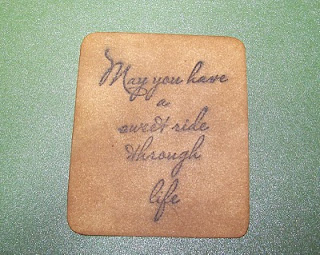 May you have
a
sweet ride
through
life